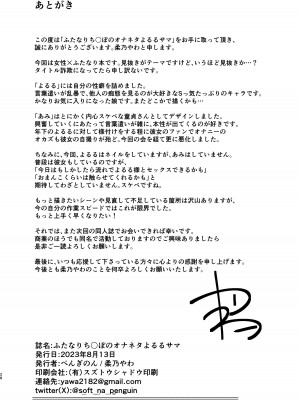 あとがき
この度は「ふたなりち〇ぽのオナネタよるるサマ」をお手に取って頂き、
誠にありがとうございます。柔乃やわと申します。
今回は女性×ふたなり本です。見抜きがテーマですけど、いうほど見抜きか…?
タイトル詐欺になってたら申し訳ないです。
「よるる」には自分の性癖を詰めました。
言葉遣いが乱暴で、他人の痴態を見るのが大好きなSっ気たっぷりのギャルです。
かなりお気に入りなった娘です。またどこかで描くかも…
「あみ」はとにかく内心スケベな童貞さんとしてデザインしました。
興奮していくにあたって言葉遣いが雑に、本性が出てくるのが好きです。
年下のよるるに対して様付けをする様に彼女のファンでオナニーの
オカズも彼女の自撮りが殆ど。今回の会を経て更に悪化しました。
ちなみに、今回、よるるはネイルをしていますが、あみはしていません。
普段はよるるもしているのですが、
「今日はもしかしたら流れでよるる様とセックスできるかも」
「おまんこくらいは触らせてくれるかも」と
期待してわざとしていません。スケベですね。
もっと描きたいシーンや見直して不足している箇所は沢山ありますが、
今の自分の作業スピードではこれが限界でした。
もっと上手く早くなりたい!
それでは、また次回の同人誌でお会いできれば幸いです。
商業のほうでも同名で活動しておりますのでご興味ありましたら
是非ご一読よろしくお願いします。
最後に、いつも応援して下さっている方々に心よりの感謝を申し上げます。
今後とも柔乃やわのことを何卒よろしくお願いいたします。
誌名:ふたなりち〇ぽのオナネタよるるサマ
発行日:2023年8月13日
発行者:ぺんぎのん / 柔乃やわ
印刷会社:(有)スズトウシャドウ印刷
連絡先:yawa2182@gmail.com
Twitter(X):@soft_na_penguin